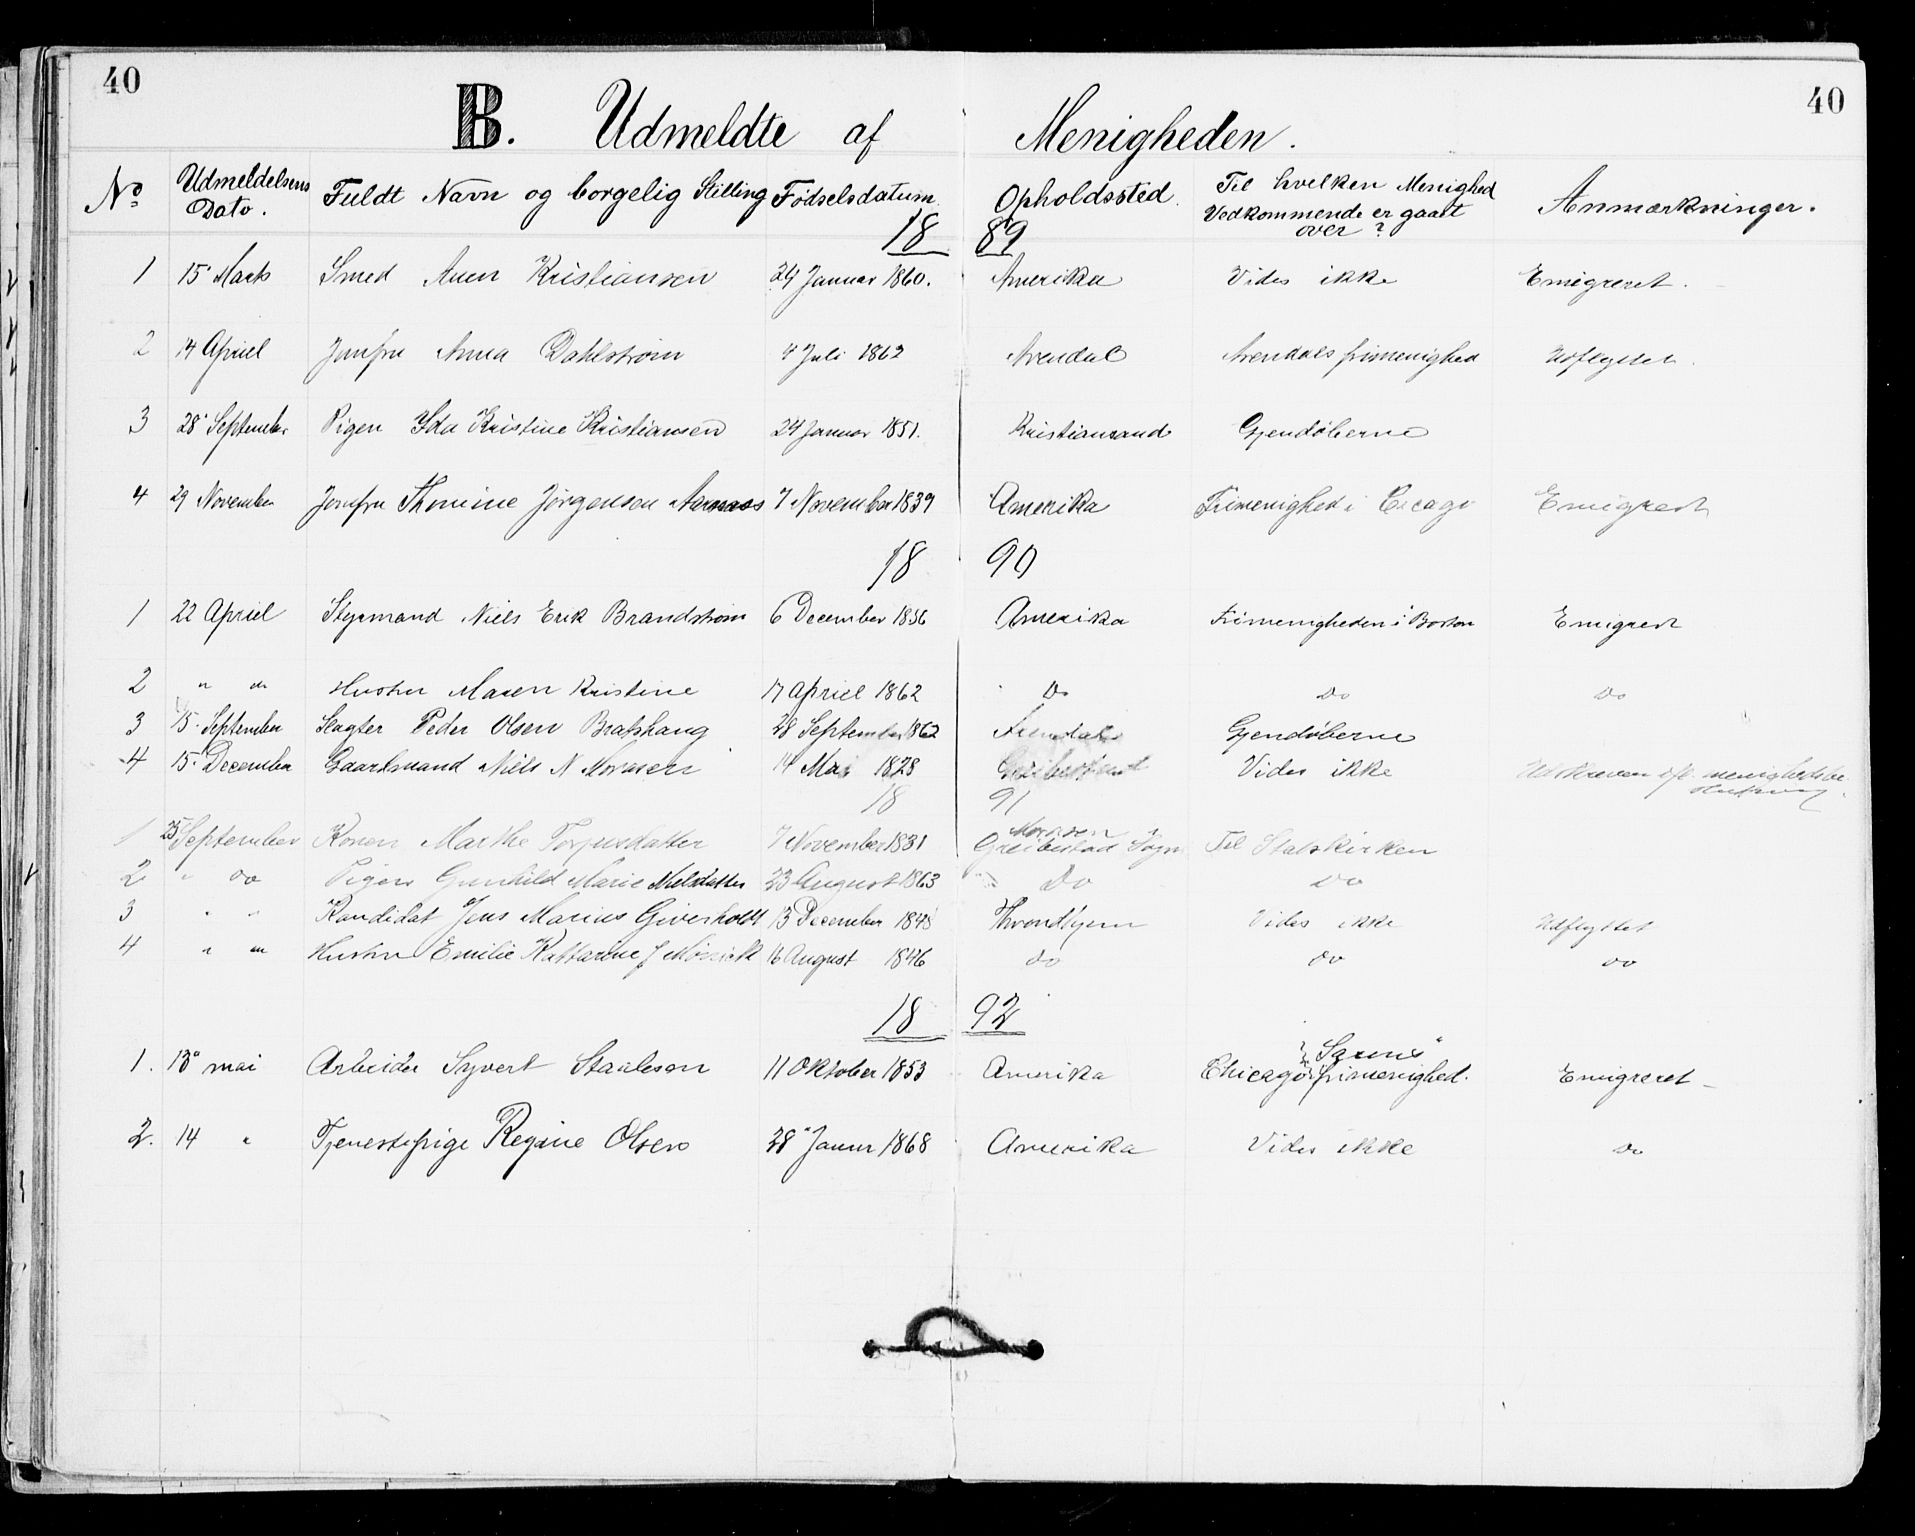 40 40
B. Udmeldte af Menigheden.
No Udmeldelsens Dato. Fuldt Navn og borgelig Stilling Fødselsdatum. Opholdssted. Til hvilken Menighed Vedkommende er gaaet over? Anmærkninger.
18 89
1 15' Marts Smed Aven Kristiansen 24 Januar 1860. Amerika Vides ikke Emigreret.
2 14 Apriel Jomfru Anna Dahlstrøm 4 Juli 1862 Arendal Arendals frimenighed Udflyttet.
3 28' September Pigen Ida Kristine Kristiansen 24 Januar 1851. Kristiansand Gjendøberne
4 29 November Jomfru Thomine Jørgensen 7 November 1839 Amerika Frimenighed i Cicago Emigrert
18 90
1 22 Apriel Styrmand Niels Erik Brandstrøm 6 December 1856 Amerika Frimenigheden i Boston Emigrert
2 " do Hustru Maren Kristine 17 Apriel 1862 Do Do Do
3 15. September Slagter Peder Olsen Bratshaug 28 September 1862 Arendal Gjendøberne
4 15. December Gaardmand Niels N Moræsen 14 Mai 1828 Vides ikke Udskreven menighedsbe-
18 91
1 25 September Konen Marthe Torjusdatter 7 November 1831 Moræsen Greibestad Sogn Til Statskirken
2 " do Pigen Gunhild Marie Nilsdatter 23 August 1863 Do Do
3 " " Kandidat Jens Marius Giverholdt 13 December 1848 Throndhjem Vides ikke Udflyttet
4 " " Hustru Emilie Kattarine J 16 August 1846 do do do
18 92
1. 13' mai Arbeider Syvert Staaleson 11 Oktober 1853 Amerika Chicago "Saxens" frimenighed. Emigreret
2. 14 " Tjenestepige Regine Olsen 28' Januar 1868 Amerika Vides ikke do